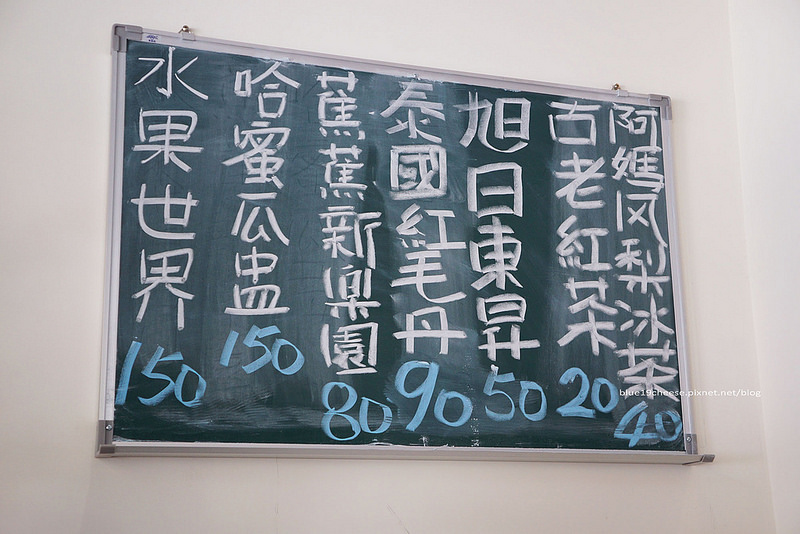 阿嬤风梨冰茶 40
古老紅茶 20
旭日東昇 50
泰國紅毛丹 90
蕉蕉新樂園 80
哈蜜瓜盅 150
水果世界 150
blue19cheese.pixnet.net/blog